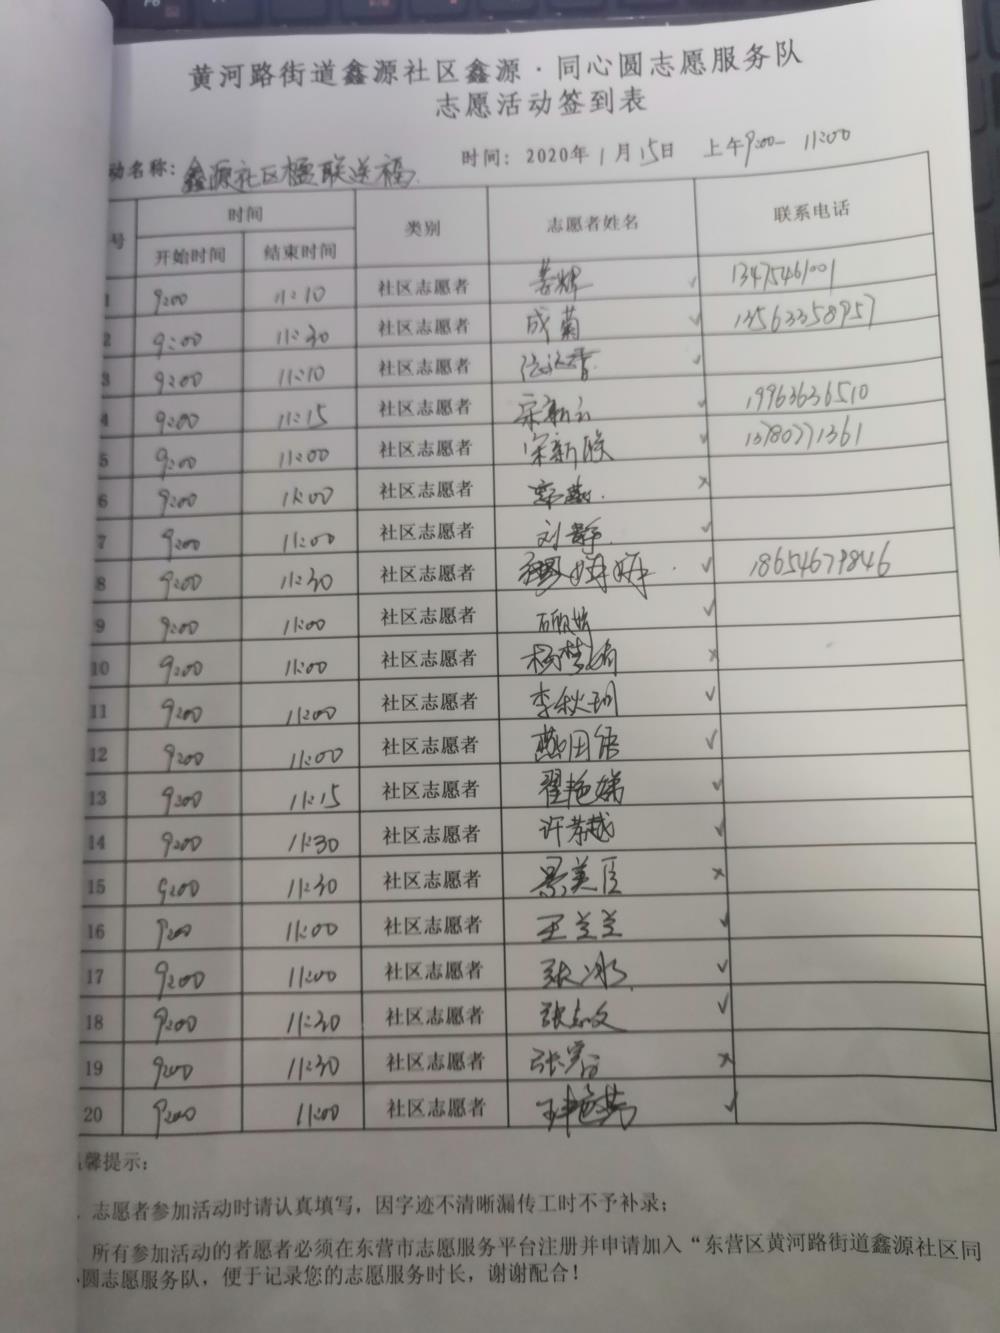 黄河路街道鑫源社区鑫源·同心圆志愿服务队
志愿活动签到表
动名称：鑫源社区楹联送福 时间：2020年1月15日 上午9:00-11:00
号 时间 类别 志愿者姓名 联系电话
开始时间 结束时间
1 9:00 11:10 社区志愿者 姜辉 ✓ 13475461001
2 9:00 11:30 社区志愿者 成菊 ✓ 13563358957
3 9:00 11:10 社区志愿者 ✓
4 9:00 11:15 社区志愿者 宋新云 ✓ 19963636510
5 9:00 11:00 社区志愿者 宋新 ✓ 13780771361
6 9:00 11:00 社区志愿者 ×
7 9:00 11:00 社区志愿者 刘静 ✓
8 9:00 11:30 社区志愿者 ✓ 18654679846
9 9:00 11:00 社区志愿者 ✓
10 9:00 11:00 社区志愿者 杨梦娟 ×
11 9:00 11:00 社区志愿者 李秋玥 ✓
12 9:00 11:00 社区志愿者 ✓
13 9:00 11:15 社区志愿者 翟艳娣 ✓
14 9:00 11:30 社区志愿者 许梦越 ✓
15 9:00 11:30 社区志愿者 景美臣 ×
16 9:00 11:00 社区志愿者 王兰兰 ✓
17 9:00 11:00 社区志愿者 张冰 ✓
18 9:00 11:30 社区志愿者 张志文 ✓
19 9:00 11:30 社区志愿者 张 ×
20 9:00 11:00 社区志愿者 ✓
馨提示：
志愿者参加活动时请认真填写，因字迹不清晰漏传工时不予补录；
所有参加活动的者愿者必须在东营市志愿服务平台注册并申请加入“东营区黄河路街道鑫源社区同
心圆志愿服务队，便于记录您的志愿服务时长，谢谢配合！